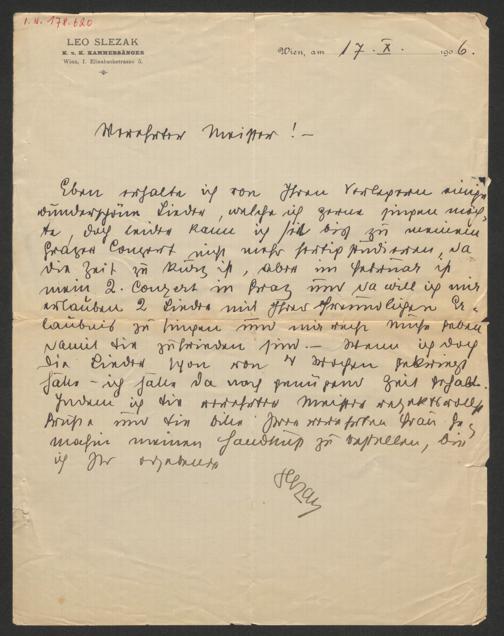 I. N. 178.620
LEO SLEZAK
K. u. K. KAMMERSÄNGER
Wien, I. Elisabethstrasse 5.
Wien, am 17. X. 1906.
Verehrter Meister! –
Eben erhalte ich von Ihren Verlegern einige
wunderschöne Lieder, welche ich gerne singen möch-
te, doch leider kann ich sie bis zu meinem
Grazer Concert nicht mehr fertig studieren, da
die Zeit zu kurz ist, aber im Februar ist
mein 2. Concert in Graz und da will ich mir
erlauben 2 Lieder mit Ihrer freundlichen Er-
laubnis zu singen und mir recht Mühe geben
damit Sie zufrieden sind. – Wenn ich doch
die Lieder schon vor 4 Wochen gekriegt
hätte – ich hätte da noch genügend Zeit gehabt.
Indem ich Sie verehrter Meister respektvollst
Grüße und Sie bitte Ihrer verehrten Frau Ge-
mahlin meinen Handkuß zu bestellen, bin
ich Ihr ergebener
Slezak